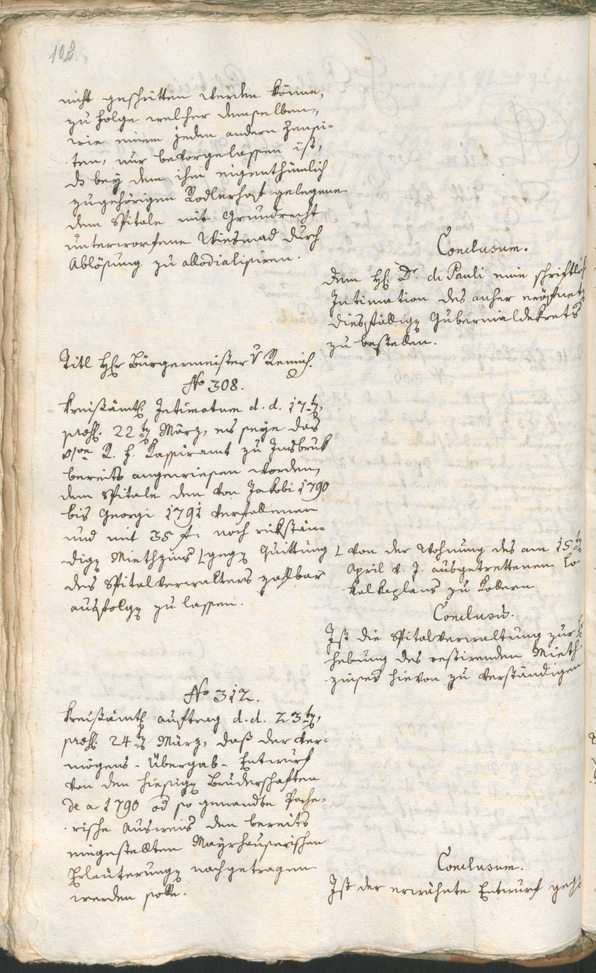 102.
nicht geschritten werden könne,
zu folge welcher demselben,
wie einem jeden andern Censi-
ten, nur bevorgelassen ist,
die bey dem ihm eigenthümlich
zugehörigen Rodlerhof gelegene
dem Spitale mit Grundrecht
unterworfene Wiesmad durch
Ablösung zu allodialisiren.
Conclusum.
Dem H. Dr. de Pauli eine schriftliche
Intimation des anher eröfneten
diesfälligen Gubernialdekrets
zu bestellen.
Titl Hr Bürgermeister v Remich.
No 308.
Kreisämtl. Intimatum d. d. 17ten,
præs. 22ten März, es seye das
K. K. Kassieramt zu Insbruk
bereits angewiesen worden,
dem Spitale den von Jakobi 1790
bis Georgi 1791 verfallenen
und mit 35 f. noch rükstän-
digen Miethzins gegen Quittung
des Spitalverwalters zahlbar
ausfolgen zu lassen.
von der Wohnung des am 15ten
April v. J. ausgetrettenen Lo-
kalkaplans zu Kobern
Conclusum.
Ist die Spitalverwaltung zur E
hebung des restirenden Mieth-
zinses hievon zu verständigen
No 312.
Kreisämtl. Auftrag d. d. 23ten,
præs. 24ten März, daß der Ver-
mögens-Übergab-Entwurf
von den hiesigen Bruderschaften
de a 1790 od so genandte Pache-
rische Ausweis den bereits
eingestellten Mayrhauserischen
Erläuterungen nachgetragen
werden solle.
Conclusum.
Ist der erwähnte Entwurf geh